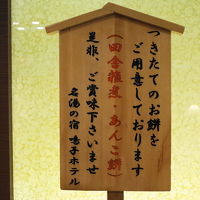 つきたてのお餅を
ご用意しております
(田舎雑煮・あんこ餅)
是非、ご賞味下さいませ
名湯の宿 鳴子ホテル